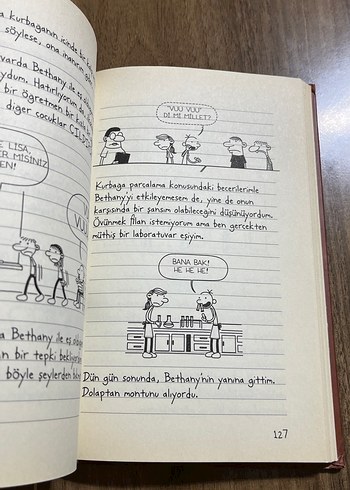 kurbağanın içinde bir
söylese, ona inanırım
varda Bethany ile eş
ydum. Hatırlıyorum da
bir öğretmen bir
diğer çocuklar
LISA,
MISINIZ
"VUU VUU"
Dİ Mİ MİLLET?
Kurbağa parçalama konusundaki becerilerimle
Bethany'yi etkileyemesem de, yine de onun
karşısında bir şansım olabileceğini düşünüyordum.
Övünmek filan istemiyorum ama ben gerçekten
müthiş bir laboratuvar eşiyim.
BANA BAK!
HE HE HE!
Bethany ile eş
bir tepki
böyle şeylerden
Dün gün sonunda, Bethany'nin yanına gittim.
Dolaptan montunu alıyordu.
127